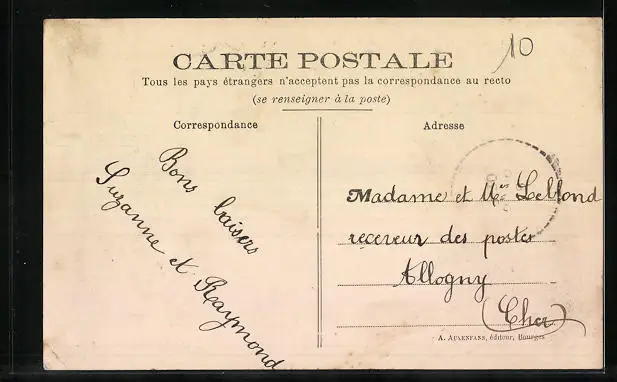 10
CARTE POSTALE
Tous les pays étrangers n'acceptent pas la correspondance au recto
(se renseigner à la poste)
Correspondance
Adresse
Bons baisers
Suzanne et Raymond
Madame et Mr Leblond
receveur des postes
Allogny
(Cher)
A. AUXENFANS, éditeur, Bourges